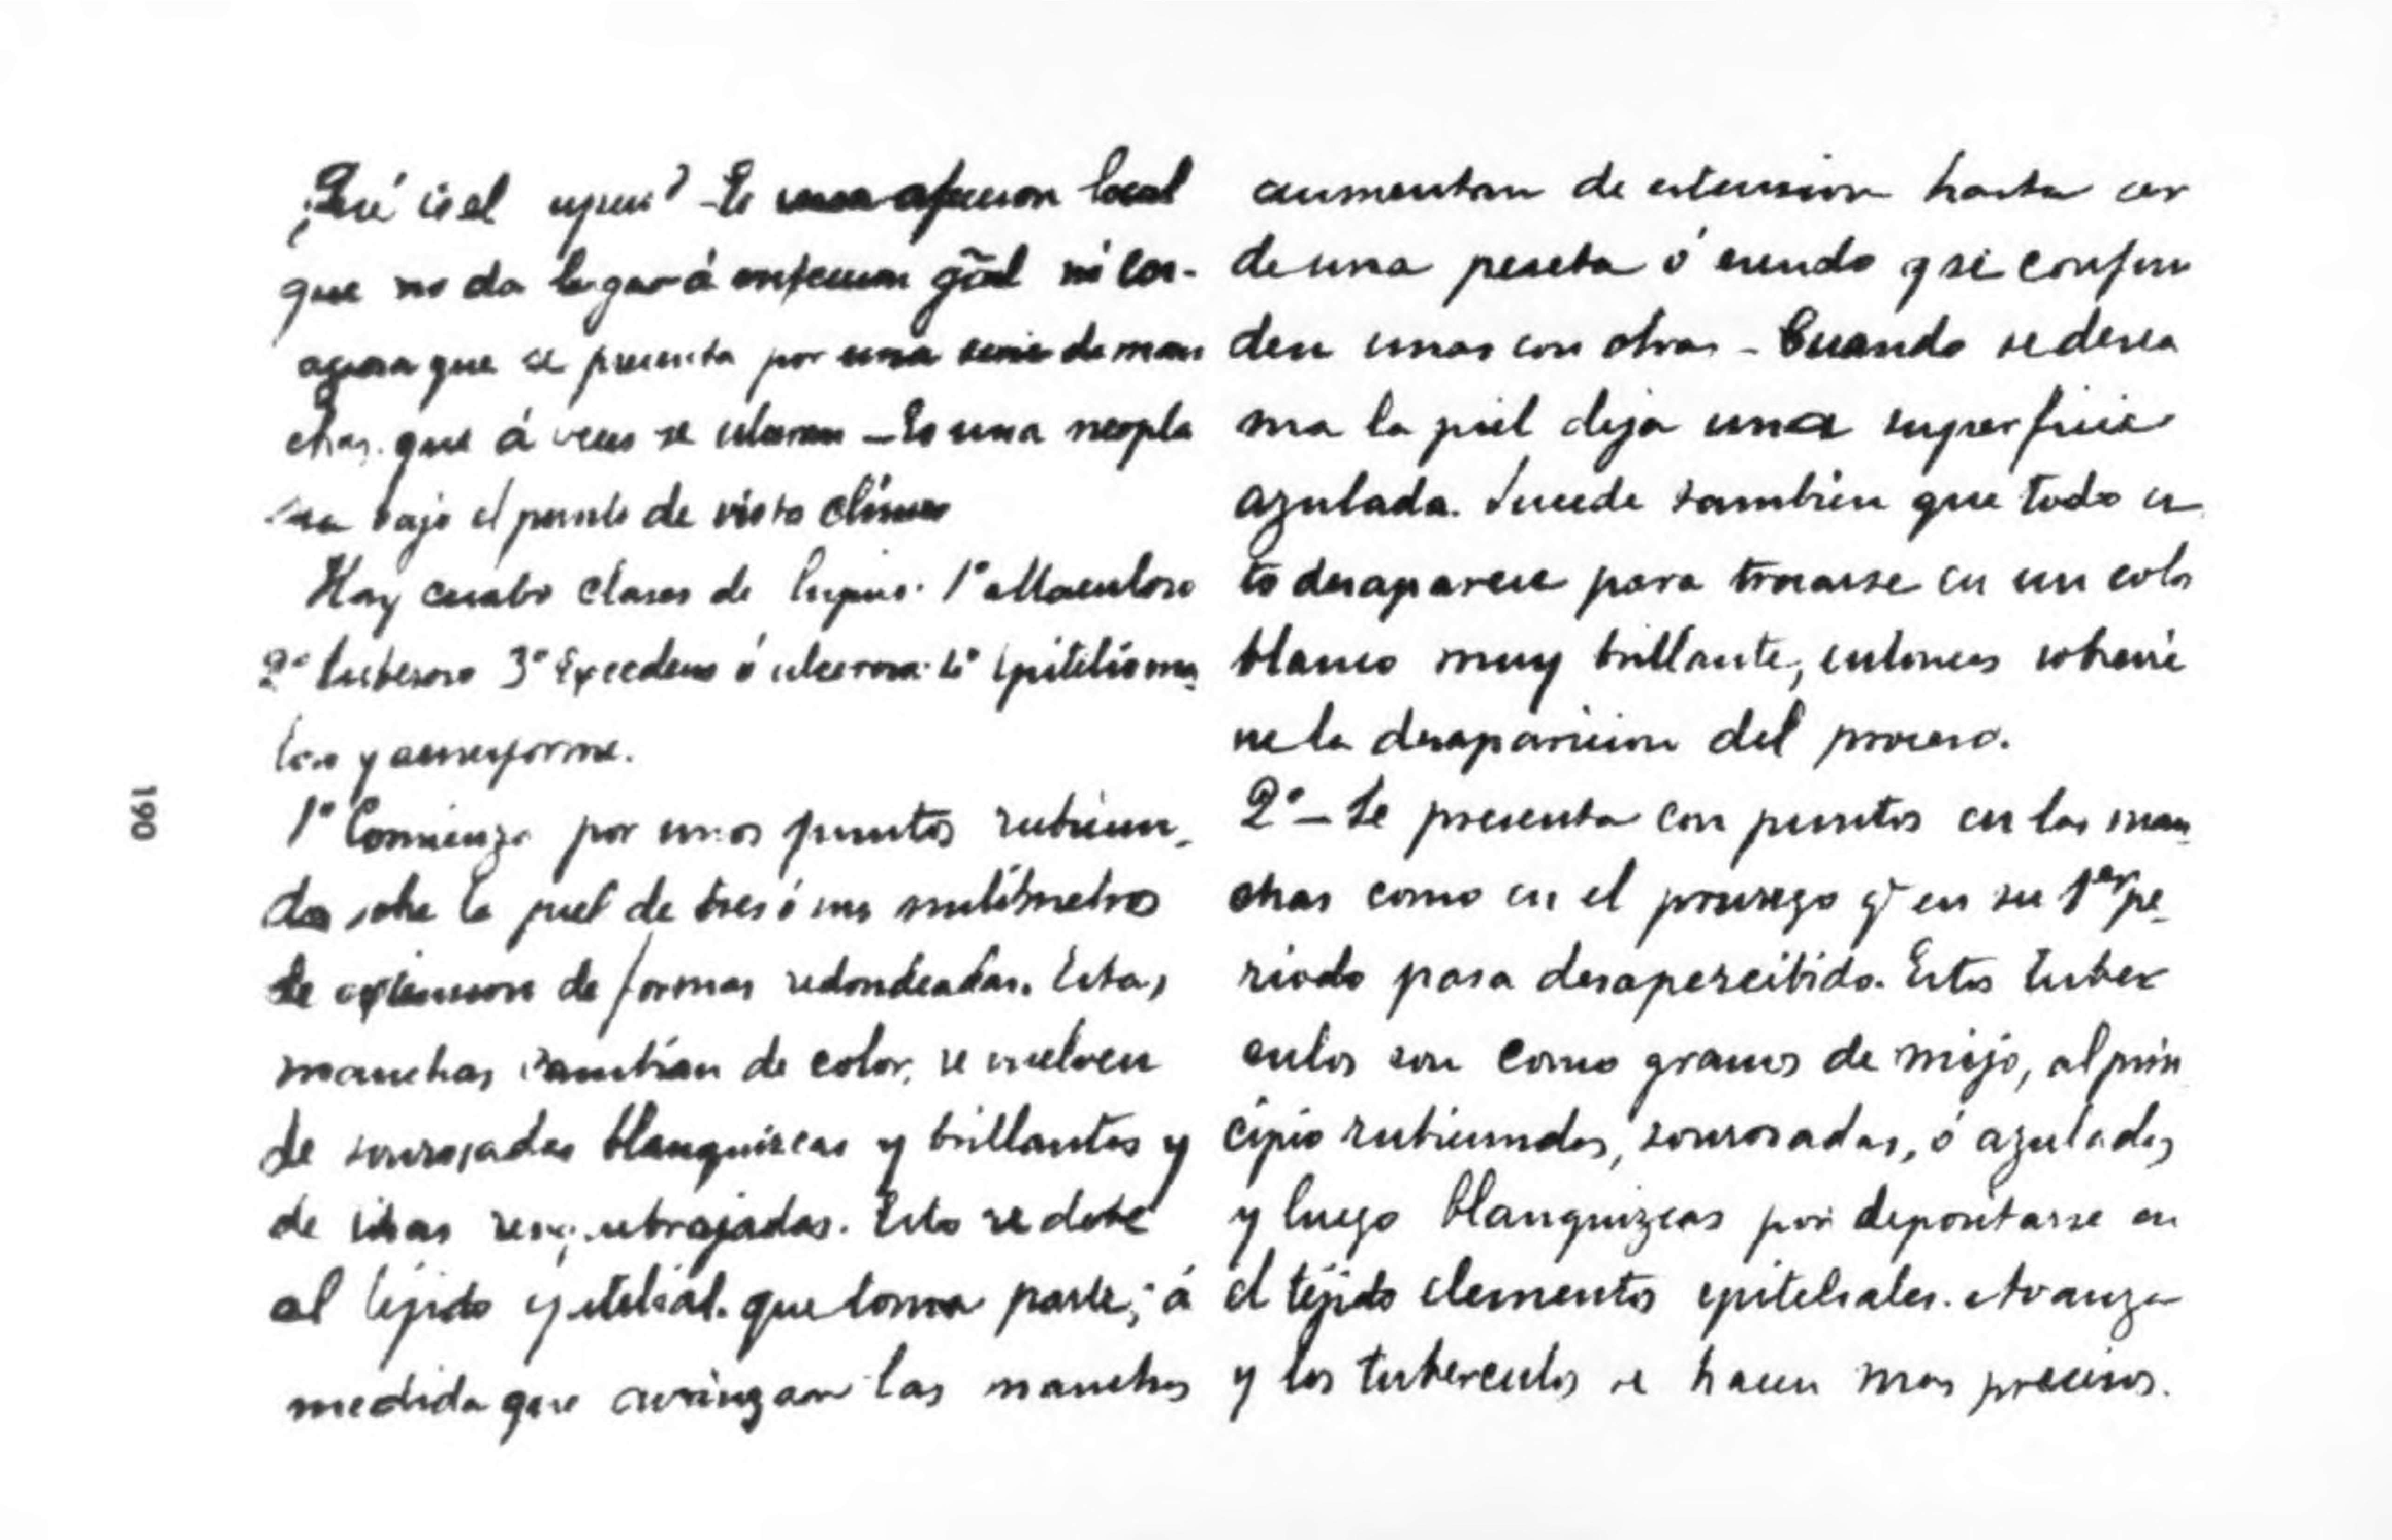 ¿Qué es el upus? - Es una afeccion local
que no da lugar á infeccion gãl ni con-
que se presenta por una serie de man
chas. que á veces se ulceran - Es una neopla
sia bajo el punto de vista clínico
Hay cuatro clases de lupus: 1º Maculoso
2º tuberoso 3º Excedens ó ulceroso 4º Epitelioma
toso y acneiforme.
1º Comienza por unos puntos rubicun-
dos sobre la piel de tres ó mas milímetros
de extension de formas redondeadas. Estas
manchas cambian de color, se vuelven
de sonrosadas blanquizcas y brillantes y
de lisas resquebrajadas. Esto se debe
al tejido epitelial que toma parte; á
medida que avanzan las manchas
aumentan de estension hasta ser
de una peseta ó escudo y se confun
den unas con otras - Cuando se desca
ma la piel deja una superficie
azulada. Sucede tambien que todo es
to desaparece para trocarse en un color
blanco muy brillante, entonces sobrevie
ne la desaparicion del proceso.
2º - Se presenta con puntos en las man
chas como en el prurigo q̃ en su 1er pe-
riodo pasa desapercibido. Estos tuber
culos son como granos de mijo, al prin
cipio rubicundos, sonrosadas, ó azulados
y luego blanquizcos por depositarse en
el tejido elementos epiteliales. Avanza
y los tuberculos se hacen mas precisos.
190